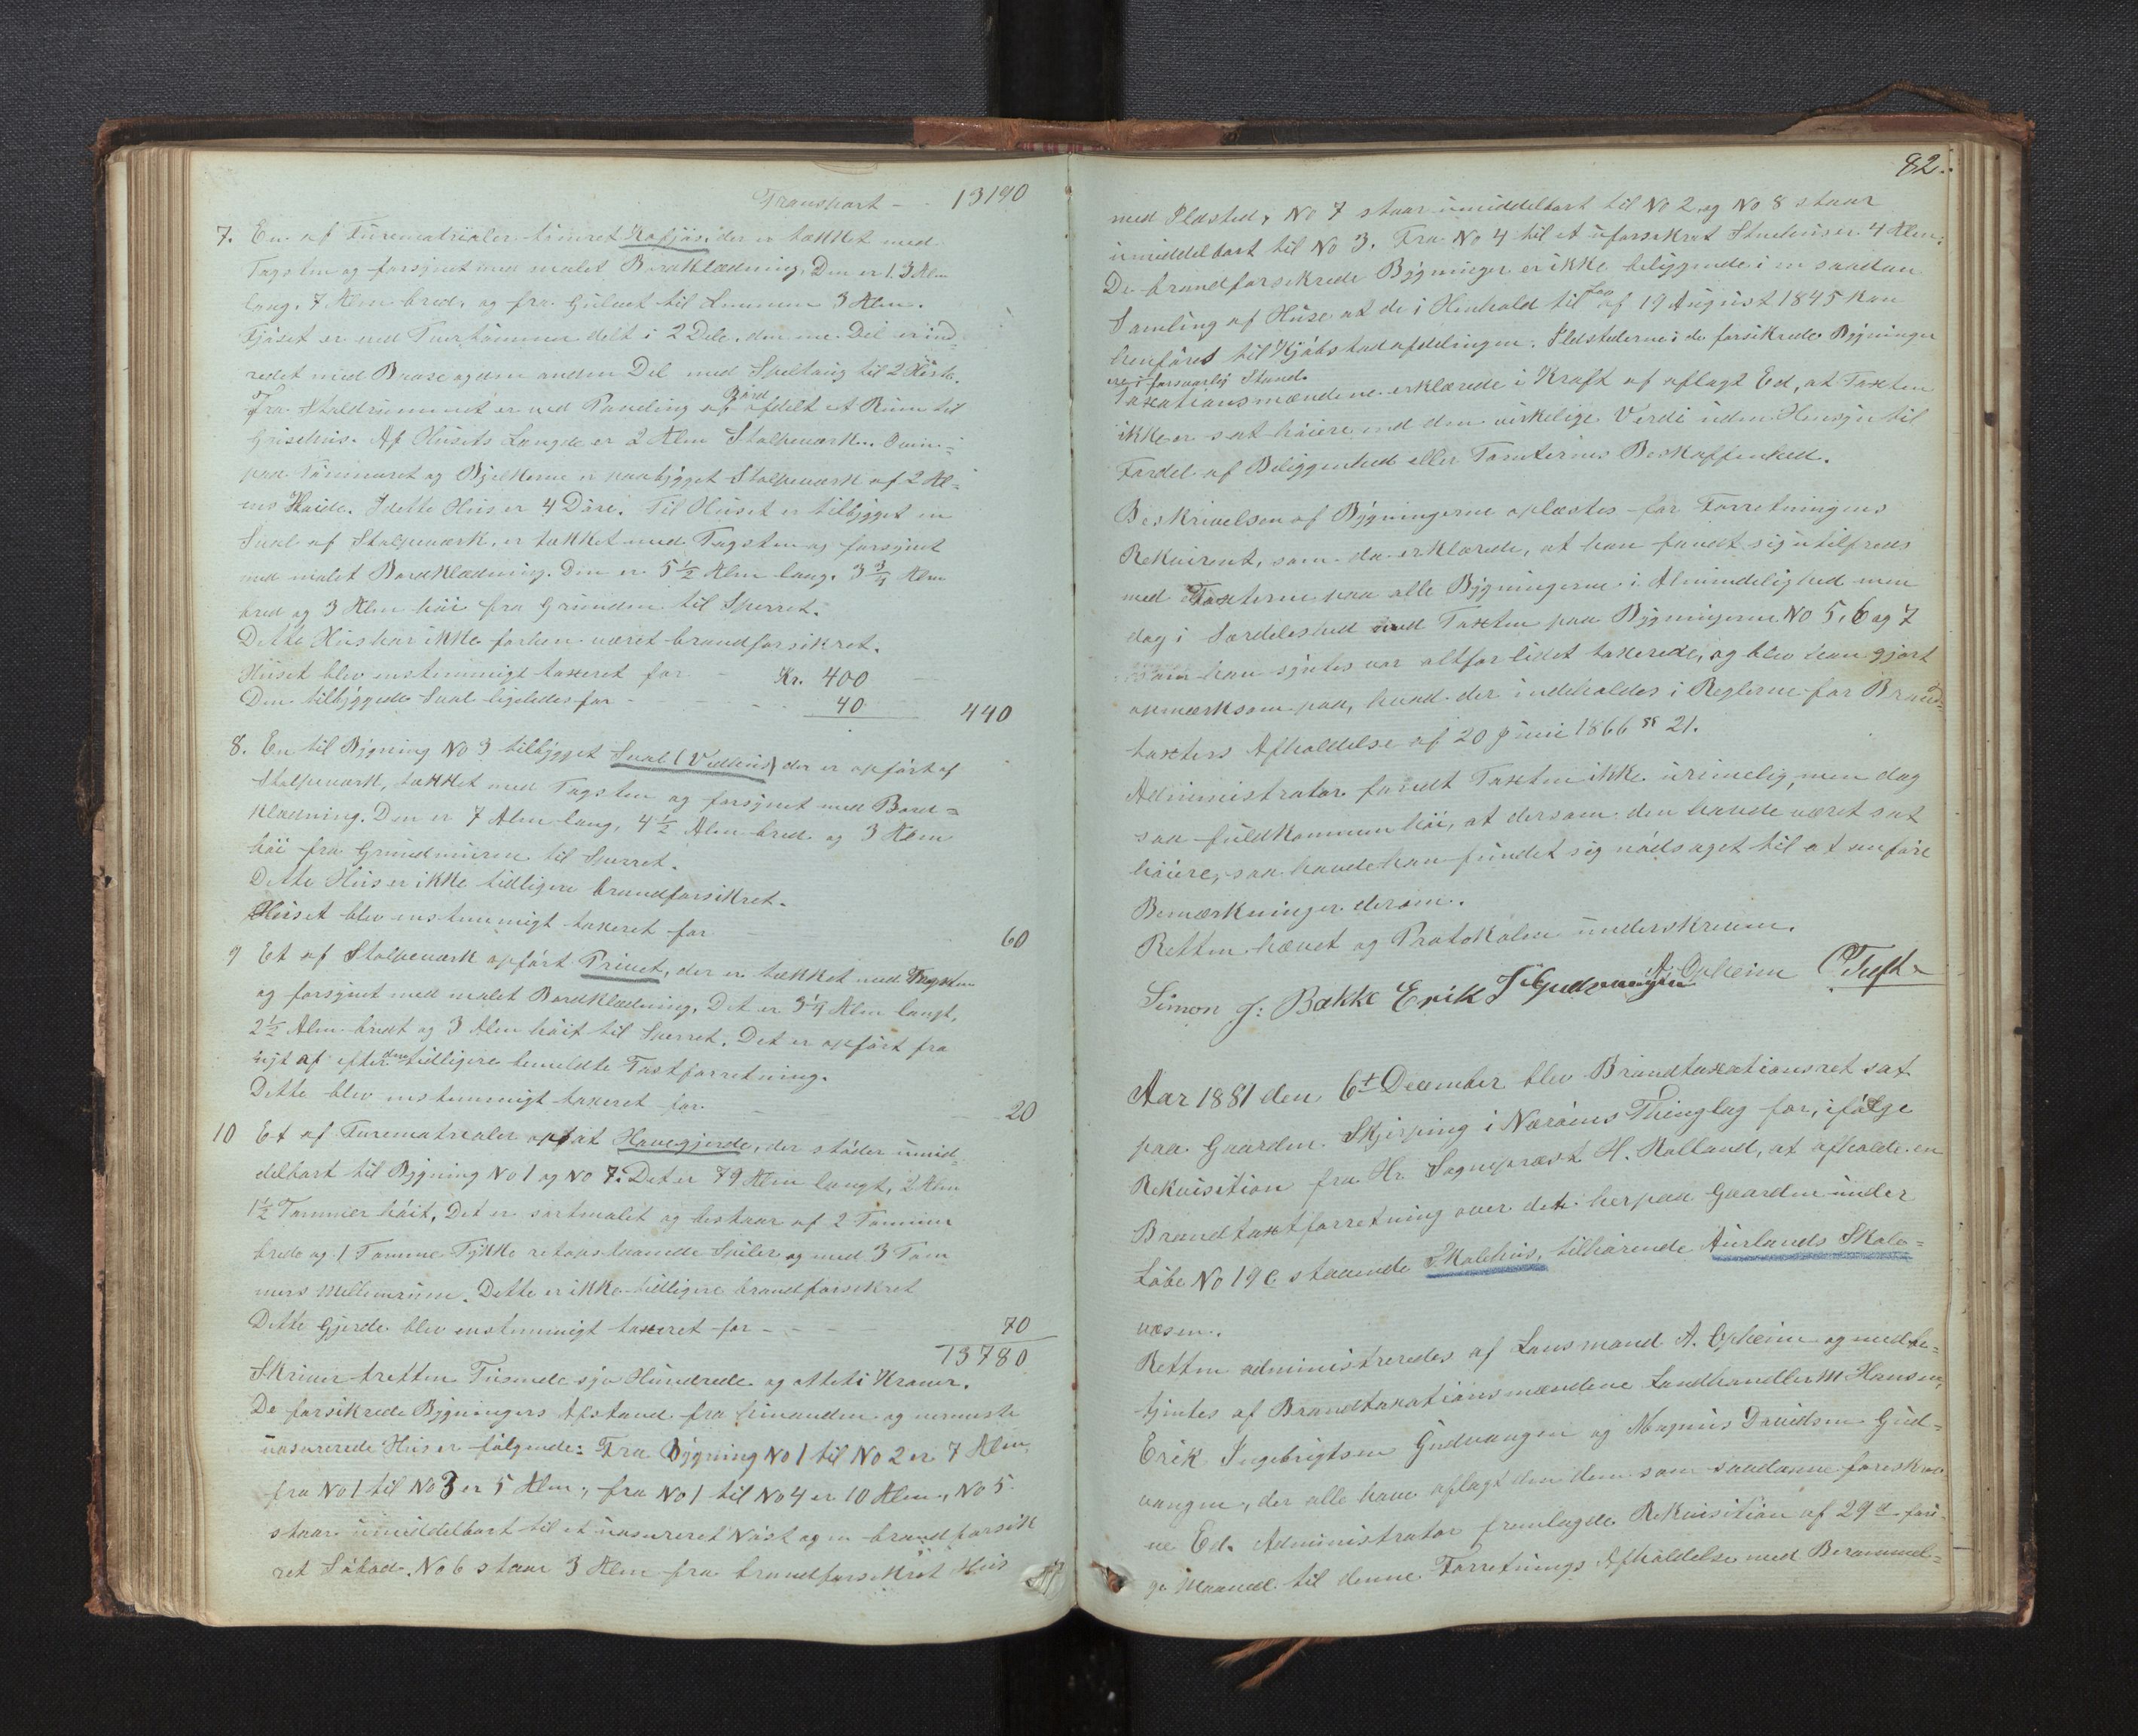 Transport - - 13190
7. En af Furematrialer tömret Kofjös, der er tækket med
Tagsten og forsynet med malet Bordklædning. Den er 13 Alen
lang, 7 Alen bred, og fra Gulvet til 3 Alen.
Fjöset er ved Tvertömmer delt i 2 Dele, den ene Del er ind-
redet med Baase og den anden Del med Spiltoug til 2 Heste.
Fra Staldrummet er ved Paneling af Bord afdelt et Rum til
Grisehus. Af Husets Længde er 2 Alen Stolpeværk. Oven-
paa Tömmeret og Bjelkerne er paabygget Stolpeværk af 2 Al-
ens Höide. I dette Hus er 4 Döre. Til Huset er tilbygget en
Sval af Stolpeværk, er tækket med Tagsten og forsynet
med malet Bordklædning. Den er 5 1/2 Alen lang, 3 3/4 Alen
bred og 3 Alen höi fra Grunden til Sperret.
Dette Hus har ikke forhen været brandforsikret.
Huset blev enstemmigt taxeret for - Kr. 400
Den tilbyggede Sval ligeledes for - - - - 40 440
8. En til Bygning No 3 tilbygget Sval (Vedhus) der er opfört af
Stolpeværk, tækket med Tagsten og forsynet med Bord=
klædning. Den er 7 Alen lang, 4 1/2 Alen bred og 3 Alen
höi fra Grundmuren til Sperret.
Dette Hus er ikke tidligere brandforsikret.
Huset blev enstemmigt taxeret for - 60
9 Et af Stolpeværk opfört Privet, der er tækket med Tagsten
og forsynet med malet Bordklædning. Det er 3 1/4 Alen langt,
2 1/2 Alen bredt og 3 Alen höit til Sperret. Det er opfört fra
nyt af efter den tidligere bemeldte Taxtforretning.
Dette blev enstemmigt taxeret for - - 20
10 Et af Furematrialer opsat Havegjerde, der stöder umid-
delbart til Bygning No 1 og No 7. Det er 79 Alen langt, 2 Alen
1 1/2 Tommer höit. Det er sortmalet og bestaar af 2 Tommer
brede og 1 Tomme Tykke retopstaaende Spiler og med 3 Tom-
mers Mellemrum. Dette er ikke tidligere brandforsikret
Dette Gjerde blev enstemmigt taxeret for - - - 70
13780
Skriver tretten Tusende sjv Hundrede og otteti Kroner.
De forsikrede Bygningers Afstand fra hinanden og nærmeste
uasurerede Hus er fölgende: Fra Bygning No 1 til No 2 er 7 Alen,
fra No 1 til No 3 er 5 Alen, fra No 1 til No 4 er 10 Alen, No 5
staar umiddelbart til et uasureret Nöst og en brandforsik
ret Söbod. No 6 staar 3 Alen fra brandforsikret Hus
82.
med Ildsted, No 7 staar umiddelbart til No 2, og No 8 staar
umiddelbart til No 3. Fra No 4 til et uforsikret Stuehus er 4 Alen.
De brandforsikrede Bygninger er ikke beliggende i en saadan
Samling af Huse at de i Henhold til Lov af 19 August 1845 kan
henföres til Kjöbstadafdelingen. Ildstederne i de forsikrede Bygninger
ere i forsvarlig Stand.
Taxationsmændene erklærede i Kraft af aflagt Ed, at Taxten
ikke er sat höiere end den virkelige Verdi uden Hensyn til
Fordel af Beliggenhed eller Tomternes Beskaffenhed.
Beskrivelsen af Bygningerne oplæstes for Forretningens
Rekvirent, som da erklærede, at han fandt sig utilfreds
med Taxterne paa alle Bygningerne i Almindelighed men
dog i Særdeleshed med Taxten paa Bygningerne No 5, 6 og 7
som han syntes var altfor lidet taxerede, og blev han gjort
opmærksom paa, hvad der indeholdes i Reglerne for Brand=
taxters Afholdelse af 20 Juni 1866 §§ 21.
Administrator fandt Taxten ikke urimelig, men dog
saa fuldkommen höi, at dersom den havde været sat
höiere, saa havde han fundet sig nödsaget til at anföre
Bemærkninger derom.
Retten hævet og Protokolen underskreven.
Simon J: Bakke Erik J Gudvangen A. Opheim
Aar 1881 den 6t December blev Brandtaxationsret sat
paa Gaarden Skjerping i Næröens Thinglag for, ifölge
Rekvisition fra Hr. Sognepræst H. Kolland, at afholde en
Brandtaxtforretning over det herpaa Gaarden under
Löbe No 19c staaende Skolehus, tilhörende Aurlands Skole=
væsen.
Retten administreredes af Lensmand A. Opheim og medbe=
tjentes af Brandtaxationsmændene Landhandler M. Hansen,
Erik Ingebrigtsen Gudvangen og Magnus Davidsen Gud=
vangen, der alle have aflagt den dem som saadanne foreskrev
ne Ed. Administrator fremlagde Rekvisition af 29d fori-
ge Maaned til denne Forretnings Afholdelse med Berammel=